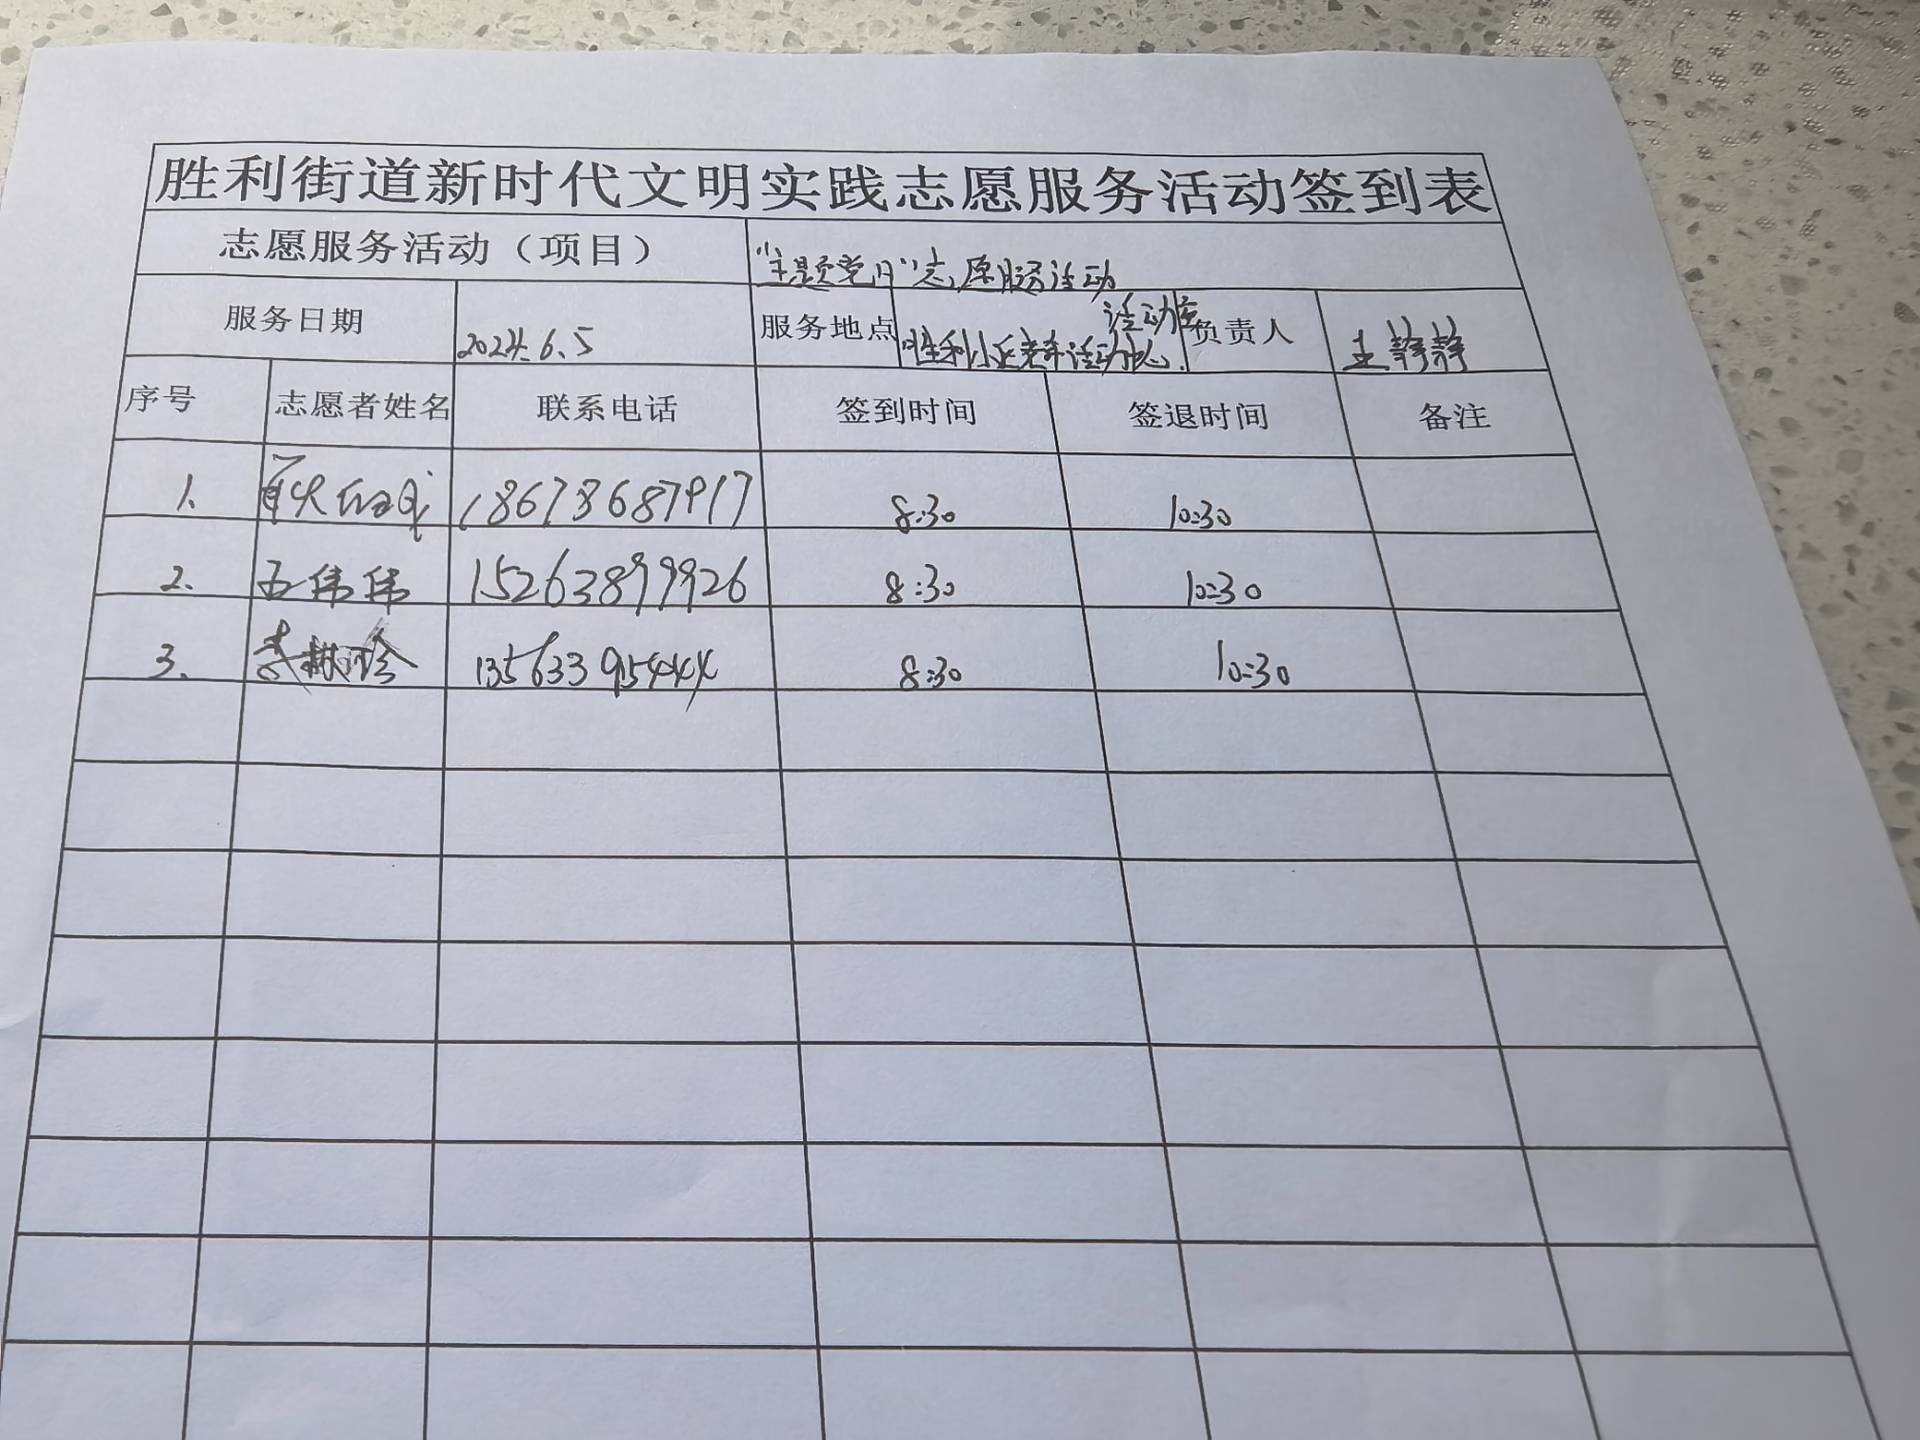 胜利街道新时代文明实践志愿服务活动签到表
志愿服务活动（项目） "主题党日"志愿服务活动
服务日期 2024.6.5 服务地点 胜利小区老年活动中心 活动室 负责人 王静静
序号 志愿者姓名 联系电话 签到时间 签退时间 备注
1. 18678687917 8:30 10:30
2. 王伟伟 15263899926 8:30 10:30
3. 13563395444 8:30 10:30